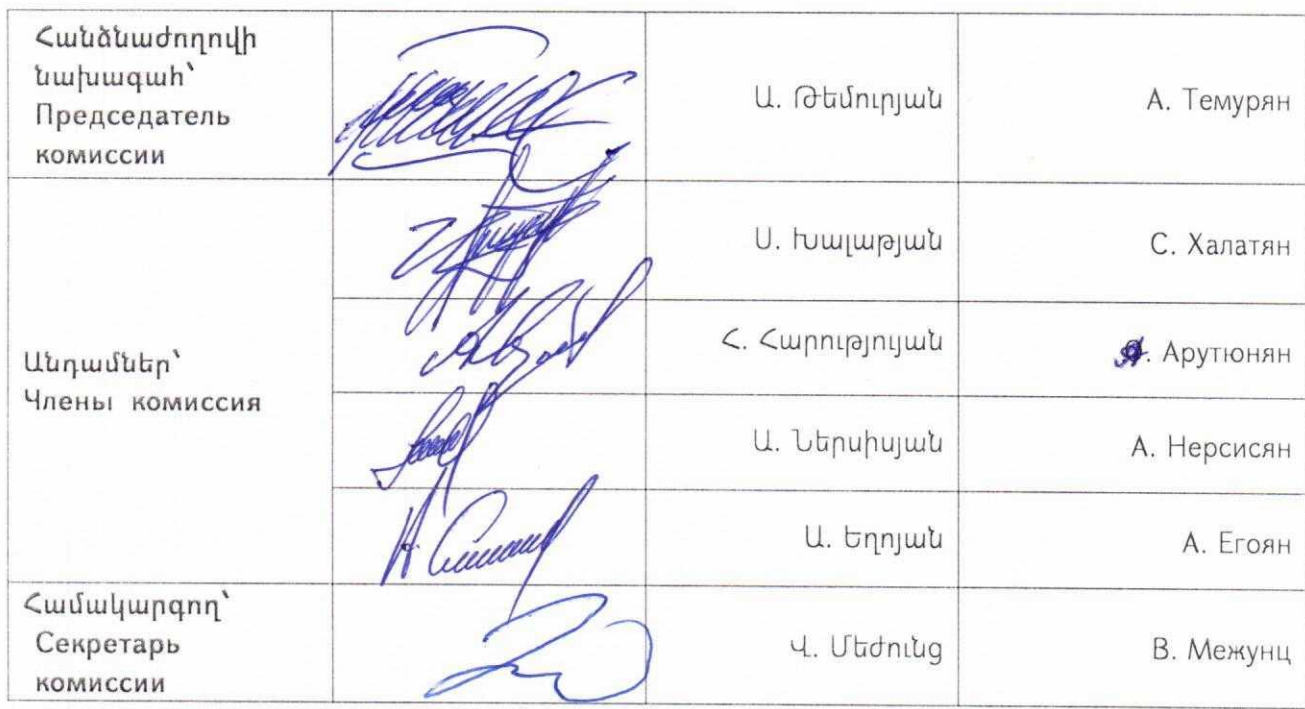 Հանձնաժողովի
նախագահ՝
Председатель
комиссии
Ա. Թեմուրյան
А. Темурян
Ս. Խալաթյան
С. Халатян
Անդամներ՝
Члены комиссия
Հ. Հարությույան
Арутюнян
Ա. Ներսիսյան
А. Нерсисян
Ա. Եղոյան
А. Егоян
Համակարգող՝
Секретарь
комиссии
Վ. Մեժունց
В. Межунц